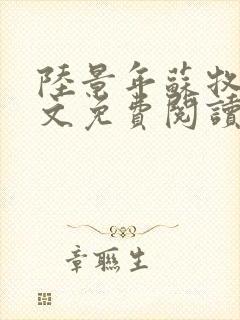 陸景年蘇牧
文免費閱讀
章聯生